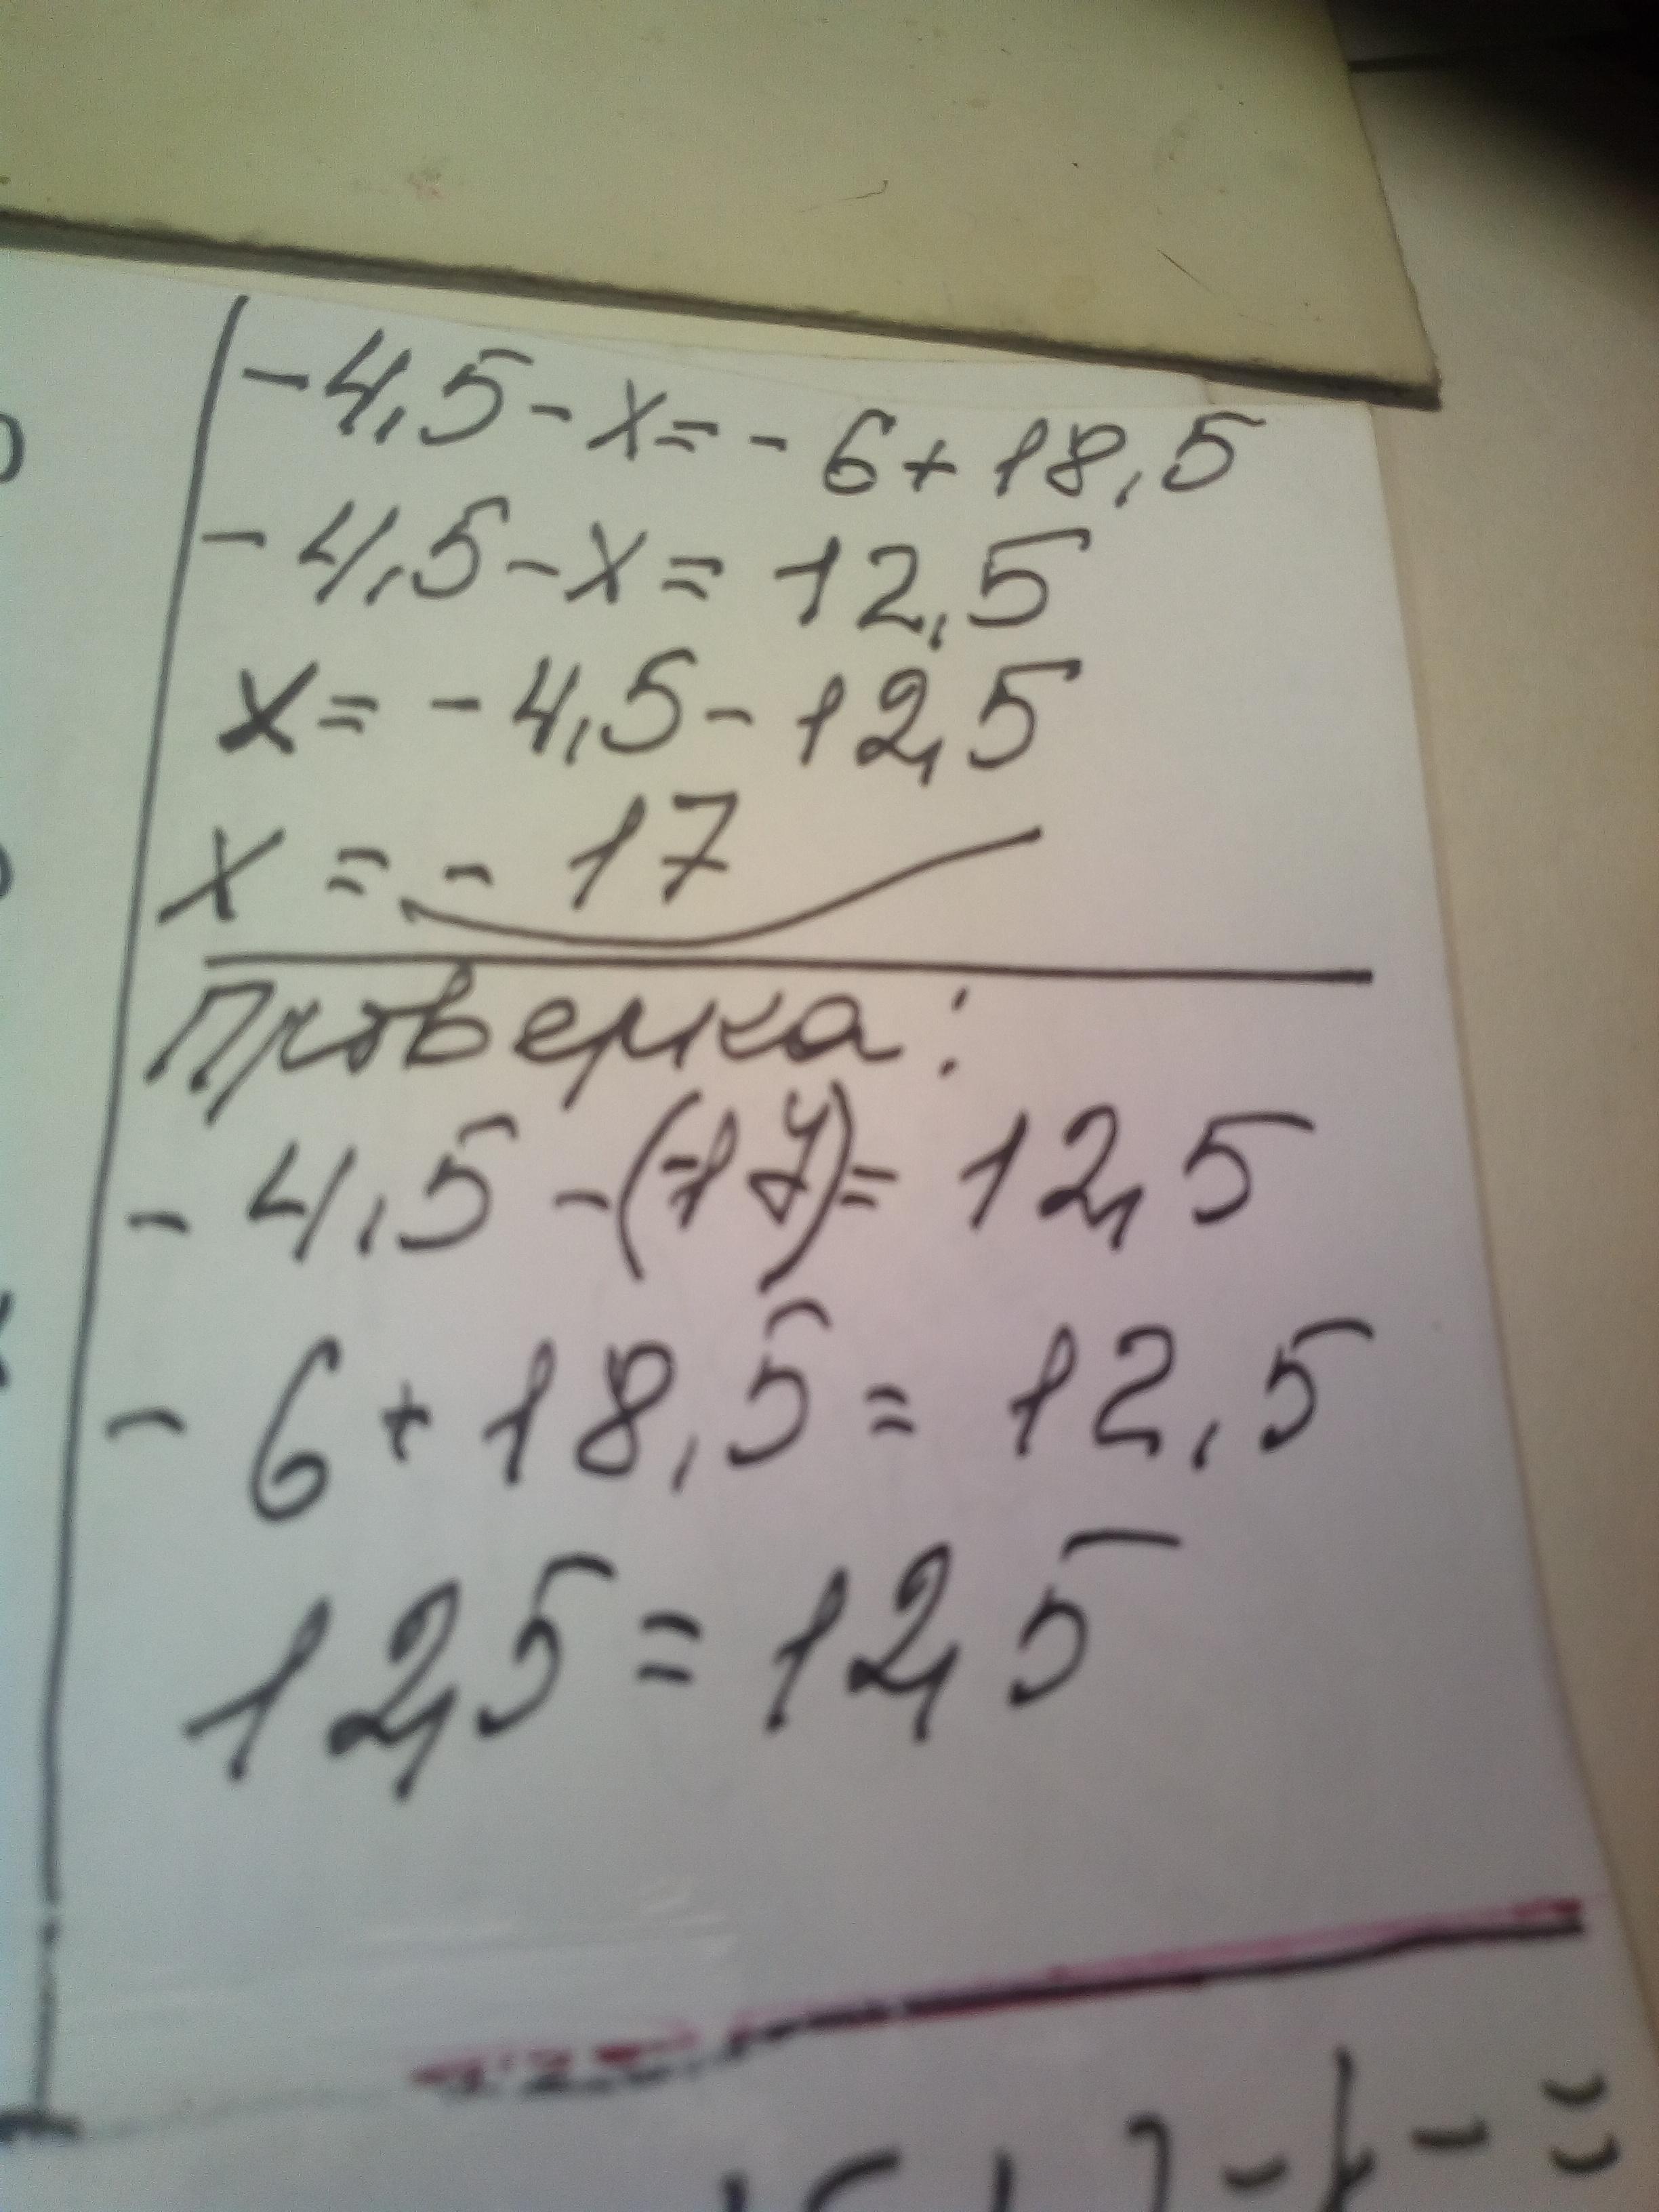 -4,5-x=-6+18,5
-4,5-x=12,5
x=-4,5-12,5
x=-17
Проверка:
-4,5-(-17)=12,5
-6+18,5=12,5
12,5=12,5